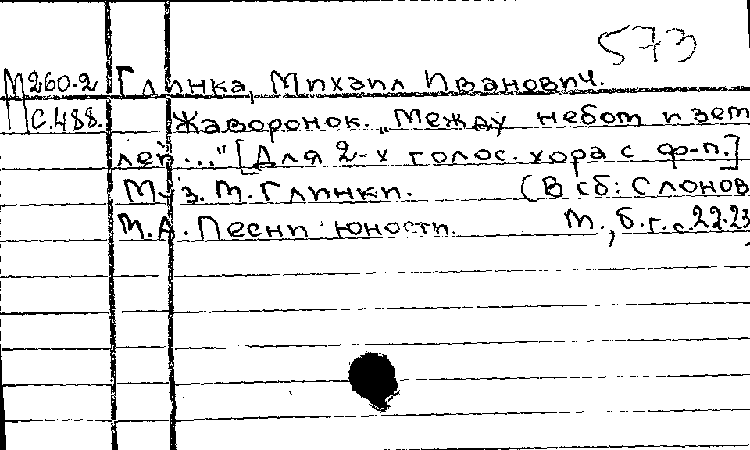 573
М260.2 Глинка, Михаил Иванович.
П с.488. Жаворонок. „Между небом и зем
лей..." [Для 2-х голос. хора с ф-п.]
Муз. М. Глинки. (В сб: Слонов
М.А. Песни юности. М., б.г. с.22-23